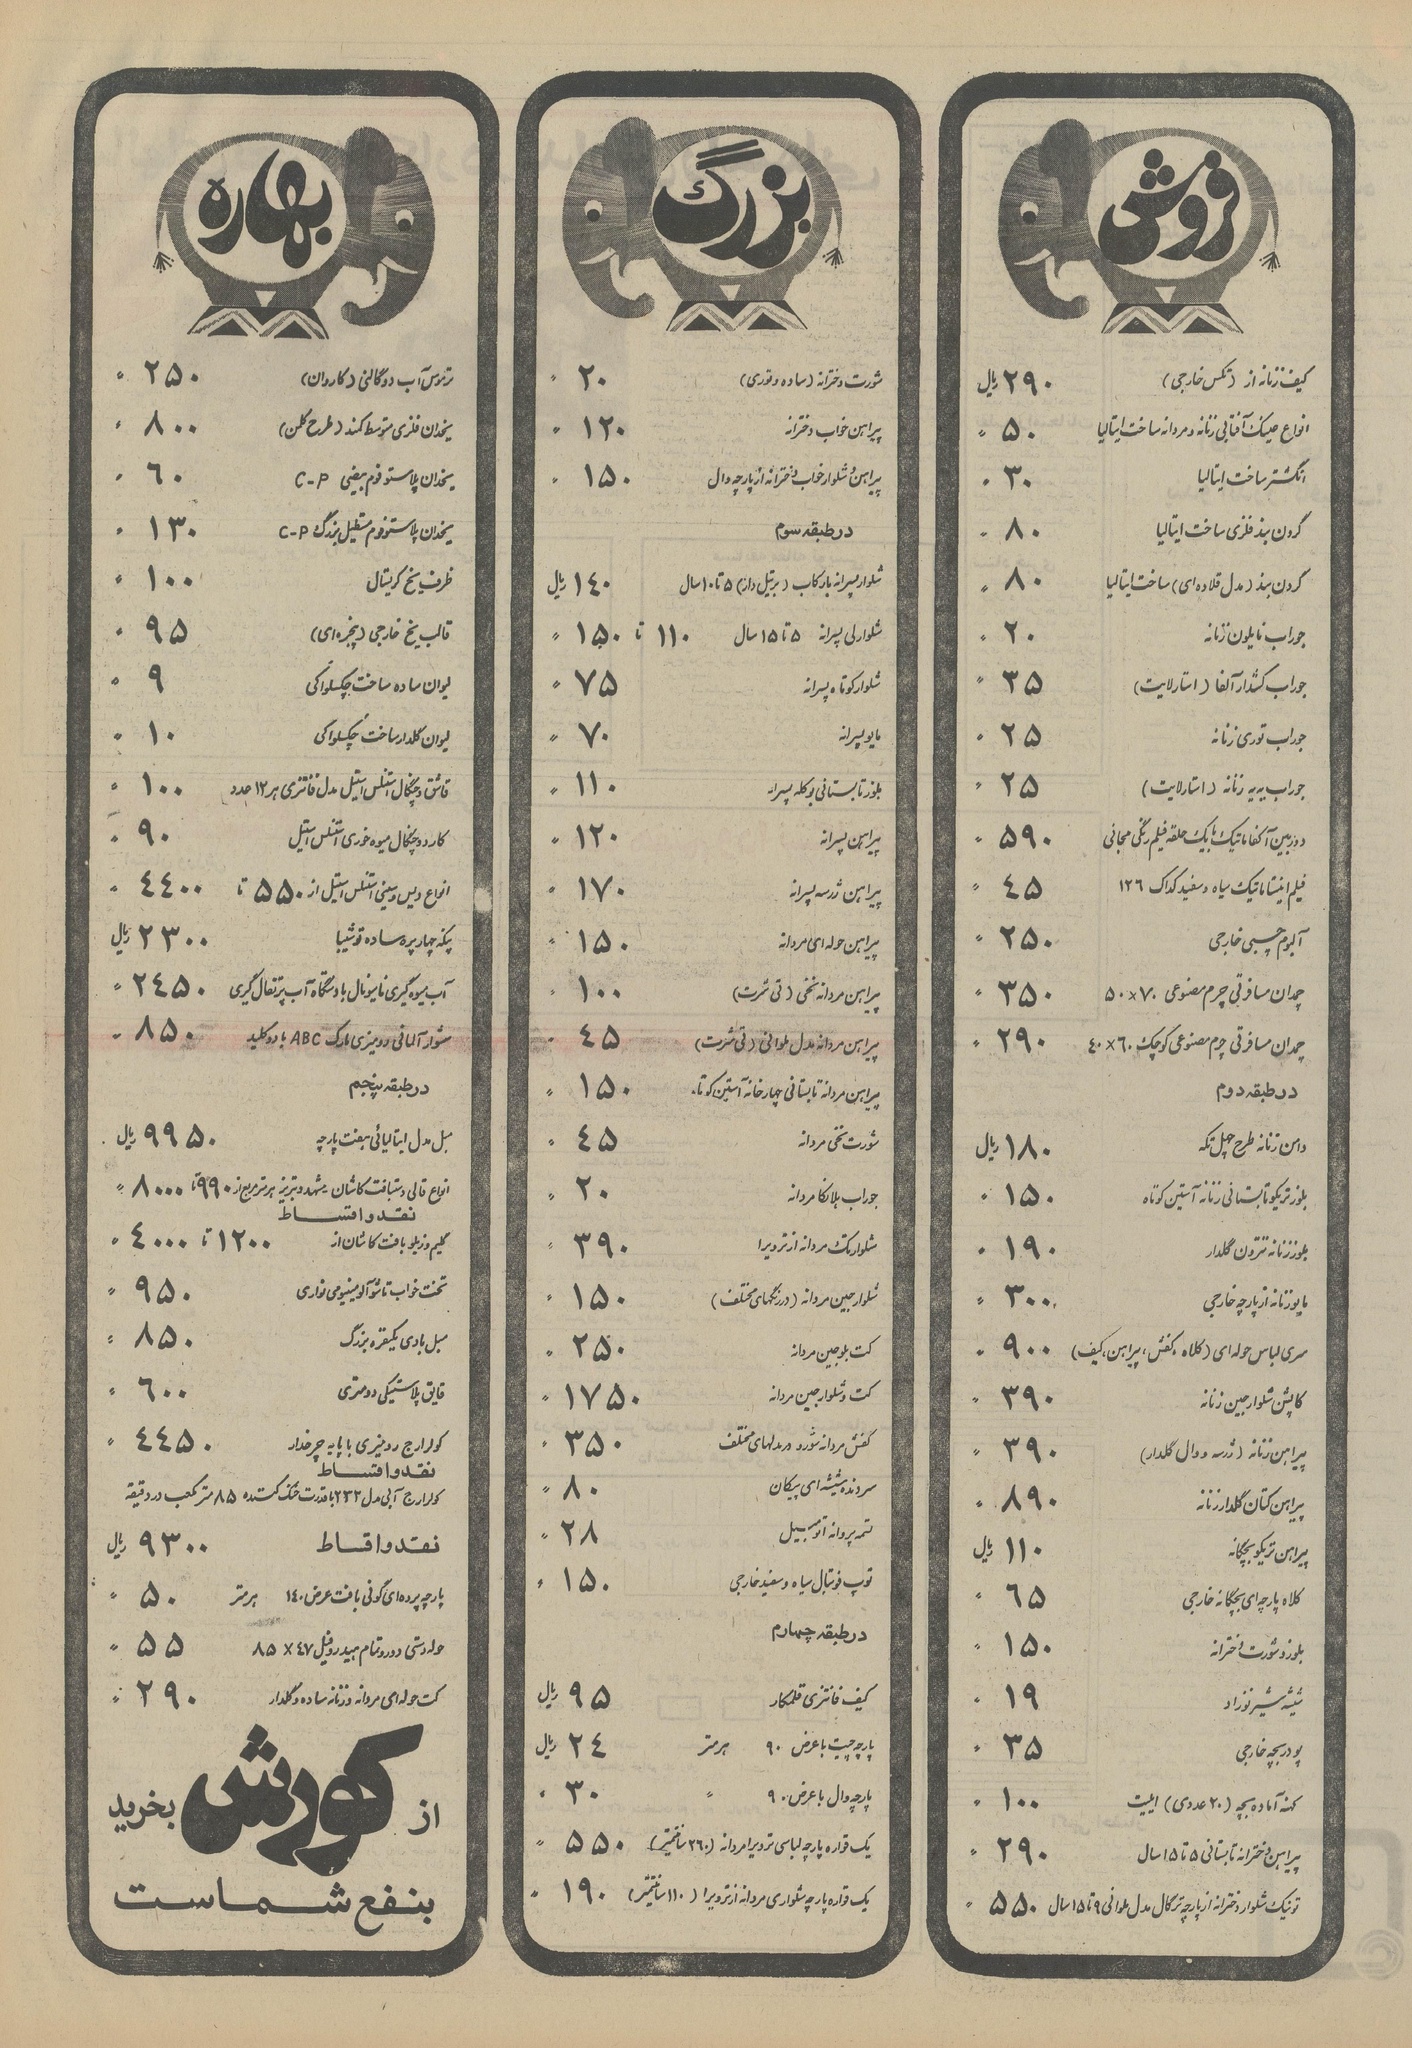 فروش
کیف زنانه از (تکس خارجی) ۲۹۰ ریال
انواع عینک آفتابی زنانه و مردانه ساخت ایتالیا ۵۰ «
انگشتر ساخت ایتالیا ۳۰ «
گردن بند فلزی ساخت ایتالیا ۸۰ «
گردن بند (مدل قلاده‌ای) ساخت ایتالیا ۸۰ «
جوراب نایلون زنانه ۲۰ «
جوراب کشدار آلفا (استارلایت) ۳۵ «
جوراب توری زنانه ۲۵ «
جوراب یه یه زنانه (استارلایت) ۲۵ «
دوربین آکفاماتیک با یک حلقه فیلم رنگی مجانی ۵۹۰ «
فیلم اینستاماتیک سیاه و سفید کداک ۱۲۶ ۴۵ «
آلبوم چسبی خارجی ۲۵۰ «
چمدان مسافرتی چرم مصنوعی ۷۰×۵۰ ۳۵۰ «
چمدان مسافرتی چرم مصنوعی کوچک ۶۰×۴۰ ۲۹۰ «
در طبقه دوم
دامن زنانه طرح چهل تکه ۱۸۰ ریال
بلوز تریکو تابستانی زنانه آستین کوتاه ۱۵۰ «
بلوز زنانه تترون گلدار ۱۹۰ «
مایو زنانه از پارچه خارجی ۳۰۰ «
سری لباس حوله‌ای (کلاه، کفش، پیراهن، کیف) ۹۰۰ «
کاپشن شلوار جین زنانه ۳۹۰ «
پیراهن زنانه (ژرسه و وال گلدار) ۳۹۰ «
پیراهن کتان گلدار زنانه ۸۹۰ «
پیراهن تریکو بچگانه ۱۱۰ ریال
کلاه پارچه‌ای بچگانه خارجی ۶۵ «
بلوز و شورت دخترانه ۱۵۰ «
شیشه شیر نوزاد ۱۹ «
پودر بچه خارجی ۳۵ «
کهنه آماده بچه (۲۰ عددی) ۱۰۰ «
پیراهن دخترانه تابستانی ۵ تا ۱۵ سال ۲۹۰ «
تونیک شلوار دخترانه از پارچه ترگال مدل ملوانی ۹ تا ۱۵ سال ۵۵۰ «
بزرگ
شورت دخترانه (ساده و توری) ۲۰ «
پیراهن خواب دخترانه ۱۲۰ «
پیراهن و شلوار خواب دخترانه از پارچه وال ۱۵۰ «
در طبقه سوم
شلوار پسرانه با رکاب (برتیل دار) ۵ تا ۱۰ سال ۱۴۰ ریال
شلوار لی پسرانه ۵ تا ۱۵ سال ۱۱۰ تا ۱۵۰ «
شلوار کوتاه پسرانه ۷۵ «
مایو پسرانه ۷۰ «
بلوز تابستانی یوکله پسرانه ۱۱۰ «
پیراهن پسرانه ۱۲۰ «
پیراهن ژرسه پسرانه ۱۷۰ «
پیراهن حوله‌ای مردانه ۱۵۰ «
پیراهن مردانه نخی (تی شرت) ۱۰۰ «
پیراهن مردانه مدل ملوانی (تی شرت) ۴۵ «
پیراهن مردانه تابستانی چهارخانه آستین کوتاه ۱۵۰ «
شورت نخی مردانه ۴۵ «
جوراب هلانکا مردانه ۲۰ «
شلوار تک مردانه از ترویرا ۳۹۰ «
شلوار جین مردانه (در رنگهای مختلف) ۱۵۰ «
کت بلوجین مردانه ۲۵۰ «
کت و شلوار جین مردانه ۱۷۵۰ «
کفش مردانه شورو در مدلهای مختلف ۳۵۰ «
سردنده شیشه‌ای پیکان ۸۰ «
تسمه پروانه اتومبیل ۲۸ «
توپ فوتبال سیاه و سفید خارجی ۱۵۰ «
در طبقه چهارم
کیف فانتزی قلمکار ۹۵ ریال
پارچه چیت با عرض ۹۰ هر متر ۲۴ ریال
پارچه وال با عرض ۹۰ « ۳۰ «
یک قواره پارچه لباسی ترویرا مردانه (۲۶۰ سانتیمتر) ۵۵۰ «
یک قواره پارچه شلواری مردانه از ترویرا (۱۱۰ سانتیمتر) ۱۹۰ «
بهاره
ترموس آب دو گالنی (کاروان) ۲۵۰ «
یخدان فلزی متوسط کمند (طرح کلمن) ۸۰۰ «
یخدان پلاستوفوم بیضی C-P ۶۰ «
یخدان پلاستوفوم مستطیل بزرگ C-P ۱۳۰ «
ظرف یخ کریستال ۱۰۰ «
قالب یخ خارجی (پنجره‌ای) ۹۵ «
لیوان ساده ساخت چکسلواکی ۹ «
لیوان گلدار ساخت چکسلواکی ۱۰ «
قاشق و چنگال استنلس استیل مدل فانتزی هر ۱۲ عدد ۱۰۰ «
کارد و چنگال میوه خوری استنلس استیل ۹۰ «
انواع دیس و سینی استنلس استیل از ۵۵۰ تا ۴۴۰۰ «
پنکه چهار پره ساده توشیبا ۲۳۰۰ ریال
آب میوه گیری ناسیونال با دستگاه آب پرتقال گیری ۲۴۵۰ «
سشوار آلمانی رومیزی مارک ABC با دو کلید ۸۵۰ «
در طبقه پنجم
مبل مدل ایتالیائی هفت پارچه ۹۹۵۰ ریال
انواع قالی دستبافت کاشان مشهد و تبریز هر متر مربع از ۹۹۰ تا ۸۰۰۰ «
نقد و اقساط
گلیم و زیلو بافت کاشان از ۱۲۰۰ تا ۴۰۰۰ «
تخت خواب تاشو آلومینیومی نواری ۹۵۰ «
مبل بادی یکنفره بزرگ ۸۵۰ «
قایق پلاستیکی دو متری ۶۰۰ «
کولر ارج رومیزی با پایه چرخدار ۴۴۵۰ «
نقد و اقساط
کولر ارج آبی مدل ۲۳۲ با قدرت خنک کننده ۸۵ متر مکعب در دقیقه
نقد و اقساط ۹۳۰۰ ریال
پارچه پرده‌ای گونی بافت عرض ۱۴۰ هر متر ۵۰ «
حوله دستی دورو تمام هیدروفیل ۴۷×۸۵ ۵۵ «
کت حوله‌ای مردانه و زنانه ساده و گلدار ۲۹۰ «
از کورش بخرید
بنفع شماست